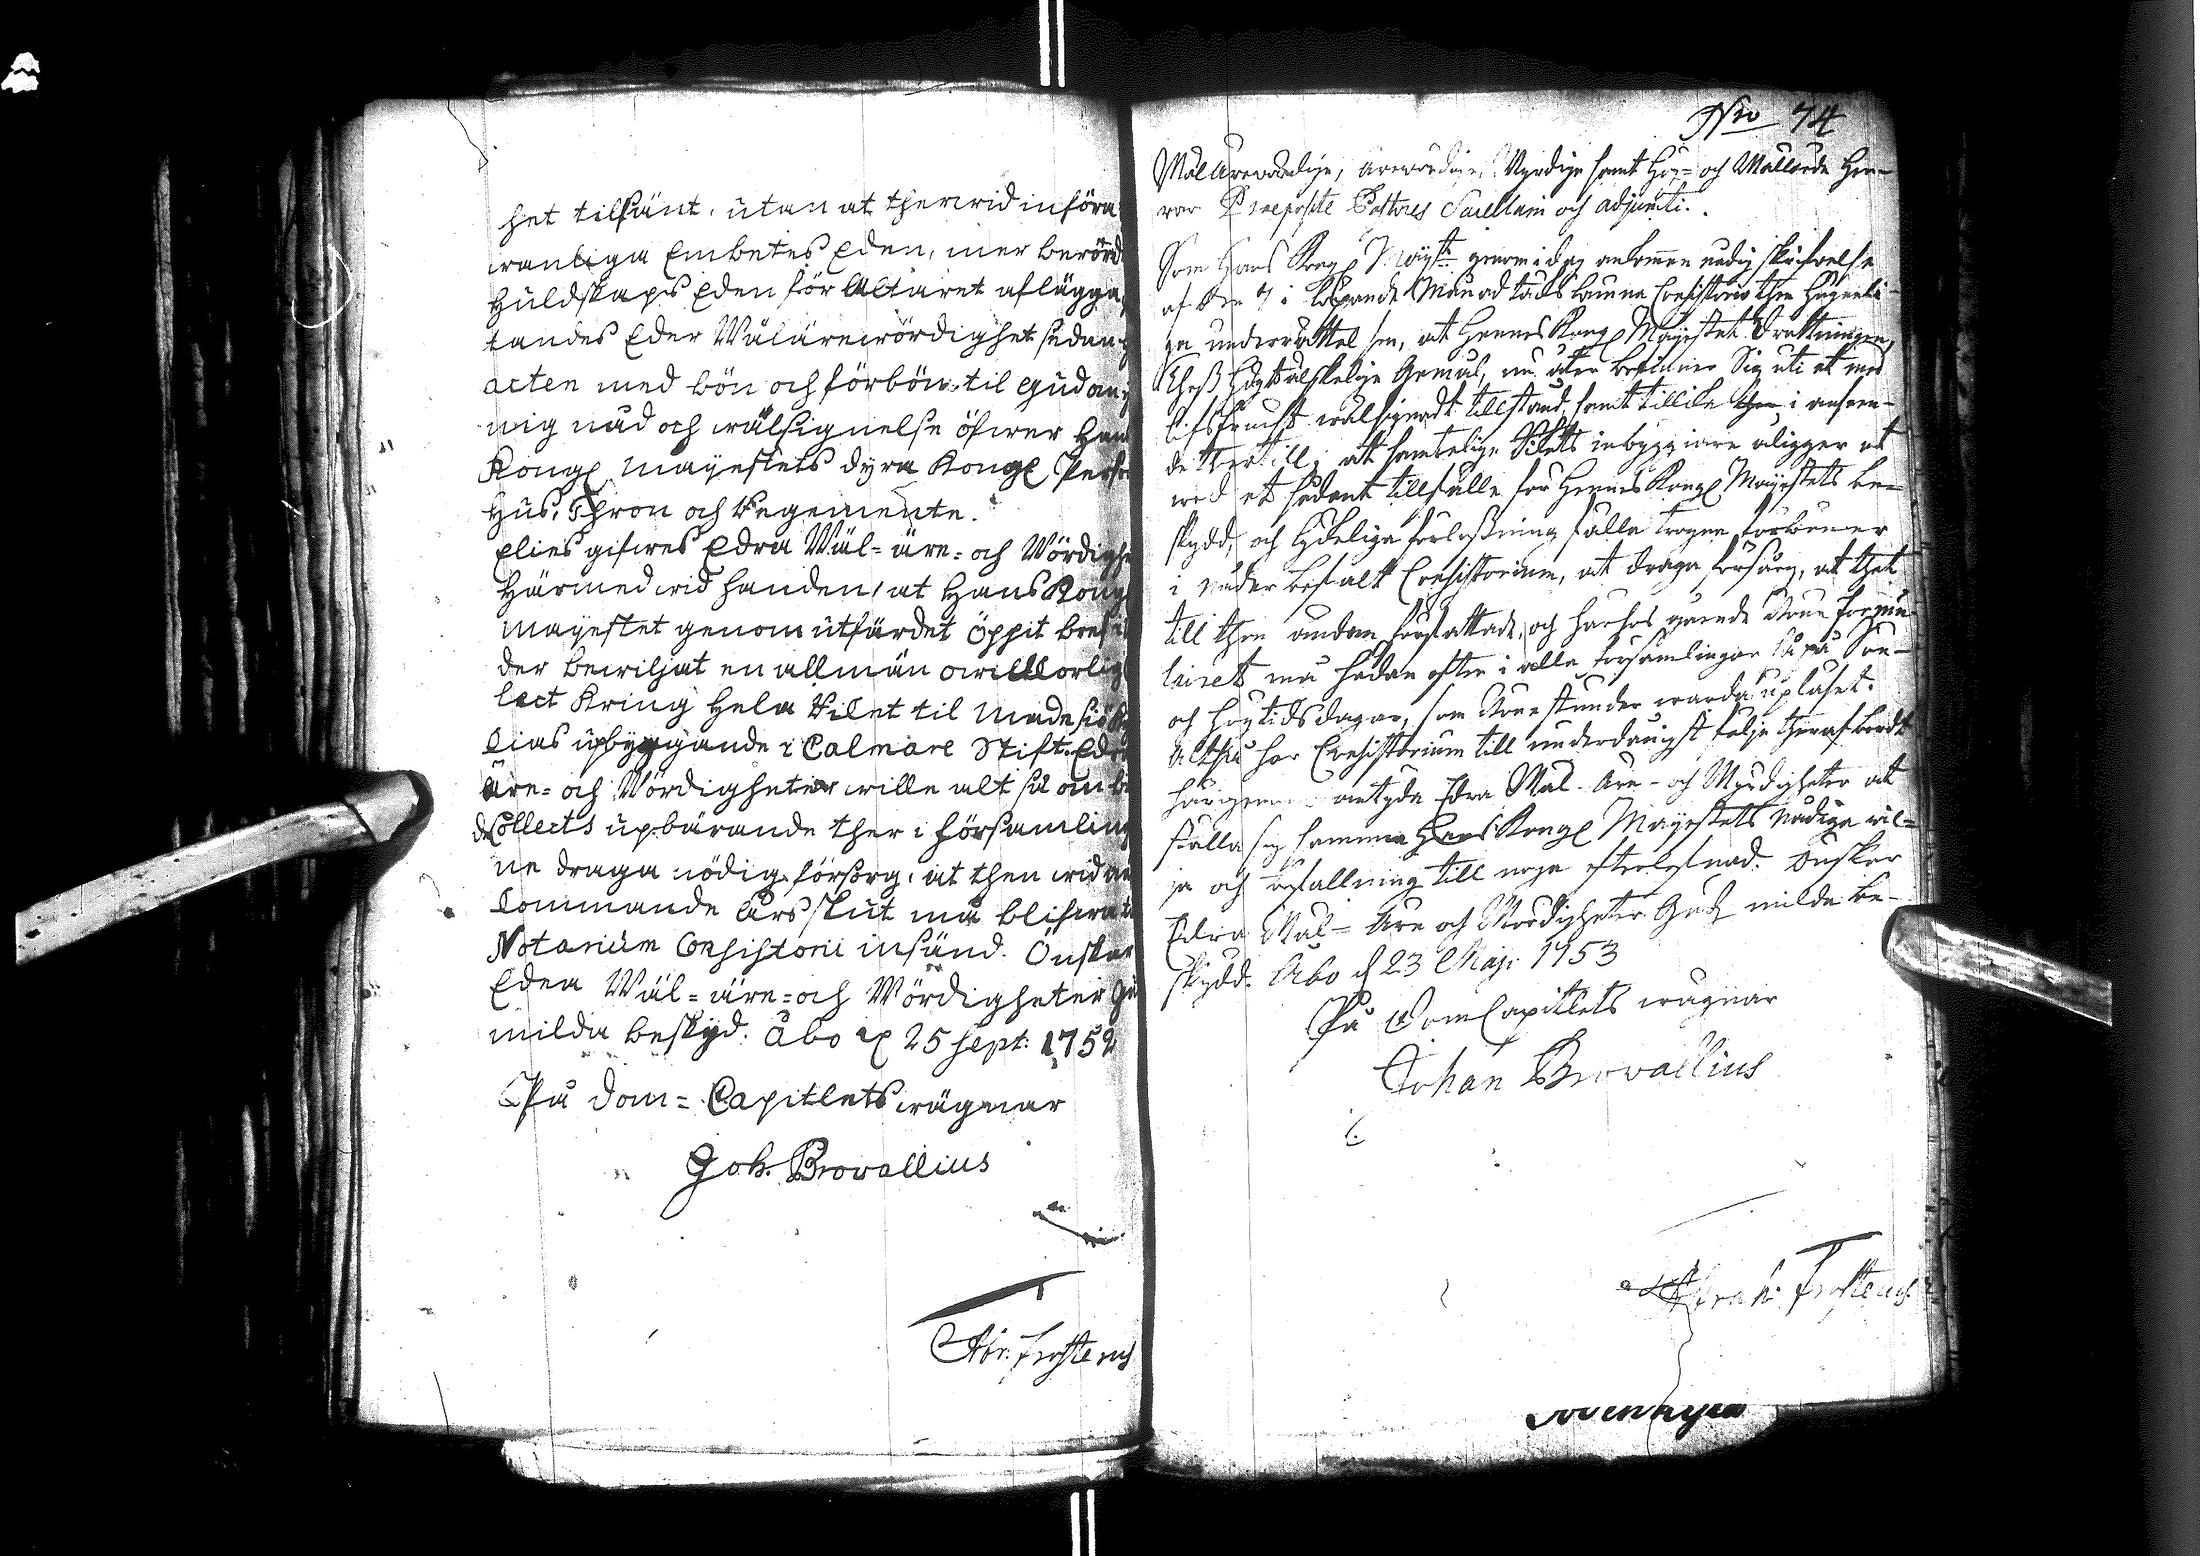 het tilsänt, utan at therwid införa
wanliga Embetes Eden, mer berörd
Huldskaps Eden för Altaret aflägga,
tandes Eder Wälärewördighet sedan
acten med bön och förbön til Gud om
nig nåd och wälsignelse öfwer Han
Kongl Mayestets dyra Kongl Perso
Hus, Thron och Regemente.
Elies gifwes Edra Wäl= äre= och Wördighe
Härmed wid handen, at Hans Kong
Mayestet genom utfärdet öppit bref
der bewiljat en allmän owillkorlig
lect Kring Hela Riket til Madesiö
cias upbyggande i Calmare Stift. Edr
Äre= och Wördigheter wille alt så om
Collects upbärande ther i församling
ne draga nödig försorg, at then wid
Commande Års slut må blifwa
Notarium Consistorii insänd. Önskar
Edra Wäl= äre= och Wördigheter Gu
milda beskyd. Åbo d 25 Sept: 1752
På Dom= Capitlets wägnar
Joh. Browallius
Abr: Frosterus
Nro 74
Wäl Ärewördige, ärewördige, Wyrdige samt Hög= och Wällärde Her=
rar Præposite Pastores Sacellani och adjuncti.
Som Hans Kongl Mayst genom i dag ankommen nådig skrifwelse
af den 7 i löpande Månad täcks kunna Consistorio then hugneli=
ga underrättelsen, at Hennes Kongl Mayestet Drottningen,
Theß Högtälskelige Gemål, nu åter befinner Sig uti et med
lifsfrucht wälsignadt tillstånd, samt tillika i anseen=
de thertill, att samtelige Rikets inbyggiare åligger at
wid et sådant tillfälle för Hennes Kongl Mayestets be=
skydd, och lyckeliga förloßning fälla trogne förböner
i nåder befalt Consistorium, at draga försorg, at thet
till then ändan författade, och härhos gående Böne formu
lairet må hädan efter i alla församlingar så på Sön=
och högtidsdagar, som bönestunder warda upläset.
Altså har Consistorium till underdånigst följe theraf bordt
härigenom antyda Edra Wäl- äre- och Wyrdigheter at
ställa sig samma Hans Kongl Mayestets Nådiga wil=
ja och befallning till noga efterlefnad. Önskar
Edra Wäl= äre och Wördigheter Guds milda be=
skydd. Åbo d 23 Maji 1753
På Dom Capitlets wägnar
Johan Browallius
Abrah: Frosterus